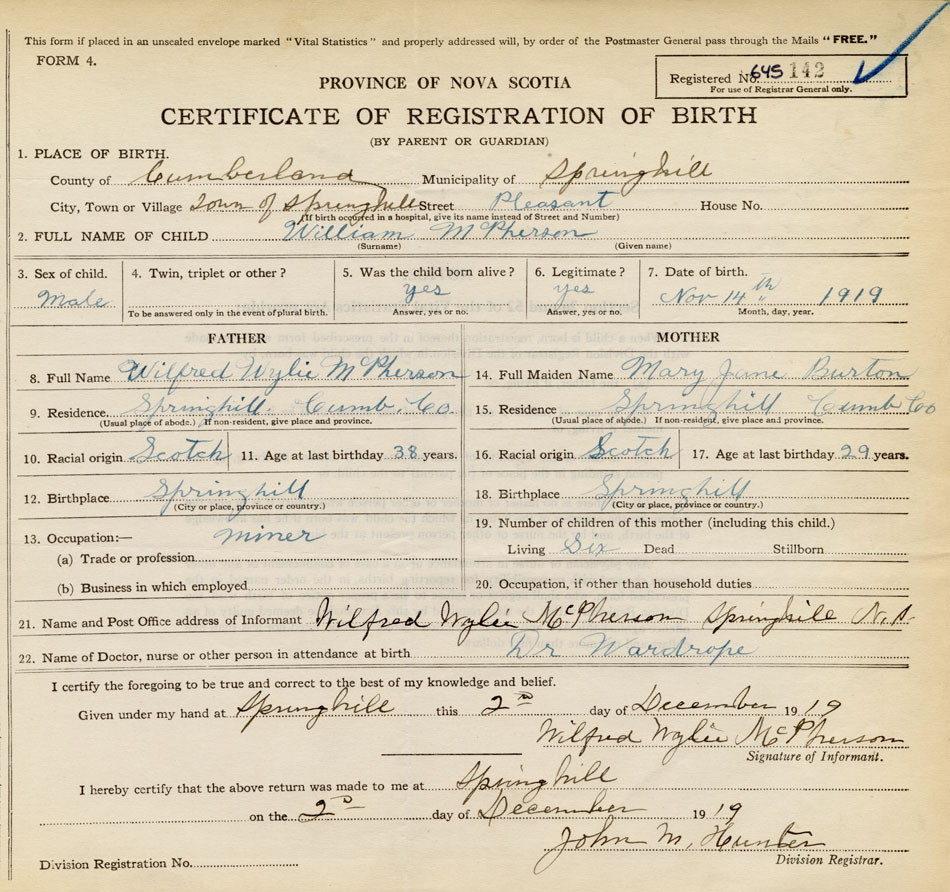 This form if placed in an unsealed envelope marked "Vital Statistics" and properly addressed will, by order of the Postmaster General pass through the Mails "FREE."
FORM 4.
Registered No. 645 142
For use of Registrar General only.
PROVINCE OF NOVA SCOTIA
CERTIFICATE OF REGISTRATION OF BIRTH
(BY PARENT OR GUARDIAN)
1. PLACE OF BIRTH.
County of Cumberland Municipality of Springhill
City, Town or Village Town of Springhill Street Pleasant House No.
(If birth occurred in a hospital, give its name instead of Street and Number)
2. FULL NAME OF CHILD William McPherson
(Surname) (Given name)
3. Sex of child. 4. Twin, triplet or other? 5. Was the child born alive? 6. Legitimate? 7. Date of birth.
Male yes yes Nov 14th 1919
To be answered only in the event of plural birth. Answer, yes or no. Answer, yes or no. Month, day, year.
FATHER MOTHER
8. Full Name Wilfred Wylie McPherson 14. Full Maiden Name Mary Jane Burton
9. Residence. Springhill. Cumb. Co. 15. Residence Springhill Cumb Co
(Usual place of abode.) If non-resident, give place and province. (Usual place of abode.) If non-resident, give place and province.
10. Racial origin Scotch 11. Age at last birthday 38 years. 16. Racial origin Scotch 17. Age at last birthday 29 years.
12. Birthplace Springhill 18. Birthplace Springhill
(City or place, province or country.) (City or place, province or country.)
13. Occupation:— miner 19. Number of children of this mother (including this child.)
(a) Trade or profession Living Six Dead Stillborn
(b) Business in which employed 20. Occupation, if other than household duties
21. Name and Post Office address of Informant Wilfred Wylie McPherson Springhill N.S.
22. Name of Doctor, nurse or other person in attendance at birth Dr Wardrope
I certify the foregoing to be true and correct to the best of my knowledge and belief.
Given under my hand at Springhill this 2nd day of December 1919
Wilfred Wylie McPherson
Signature of Informant.
I hereby certify that the above return was made to me at Springhill
on the 2nd day of December 1919
John M. Hunter
Division Registration No. Division Registrar.